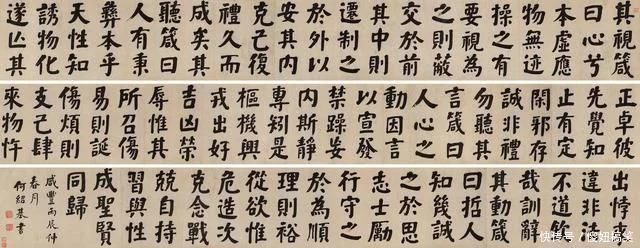 其視箴
曰心兮
本虛應
物無迹
操之有
要視為
交於前
其中則
遷制之
於外以
安其內
克己復
禮久而
咸矣其
聽箴曰
人有秉
彝本乎
天性知
誘物化
遂亾其
正卓彼
先覺知
止有定
閑邪存
誠非禮
勿聽其
言箴曰
人心之
動因言
以宣發
禁躁妄
內斯靜
專矧是
樞機興
戎出好
吉凶榮
辱惟其
所召傷
易則誕
傷煩則
支己肆
來物忤
出悖來
違非法
不道欽
哉訓辭
其動箴
曰哲人
知幾誠
之於思
志士勵
行守之
於為順
理則裕
從欲惟
危造次
克念戰
兢自持
習與性
成聖賢
同歸
咸豐丙辰仲
春月
何紹基書